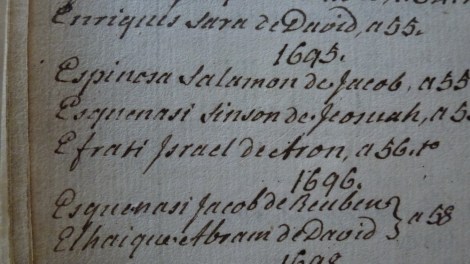 Enriques Sara de David, a 55.
1695.
Espinosa Salamon de Jacob, a 55
Esquenasi Sinson de Jeosuah, a 5
Efrati Israel de Aron, a 56. to
1696.
Esquenasi Jacob de Reuben } a 58
Elhaique Abram de David
1698